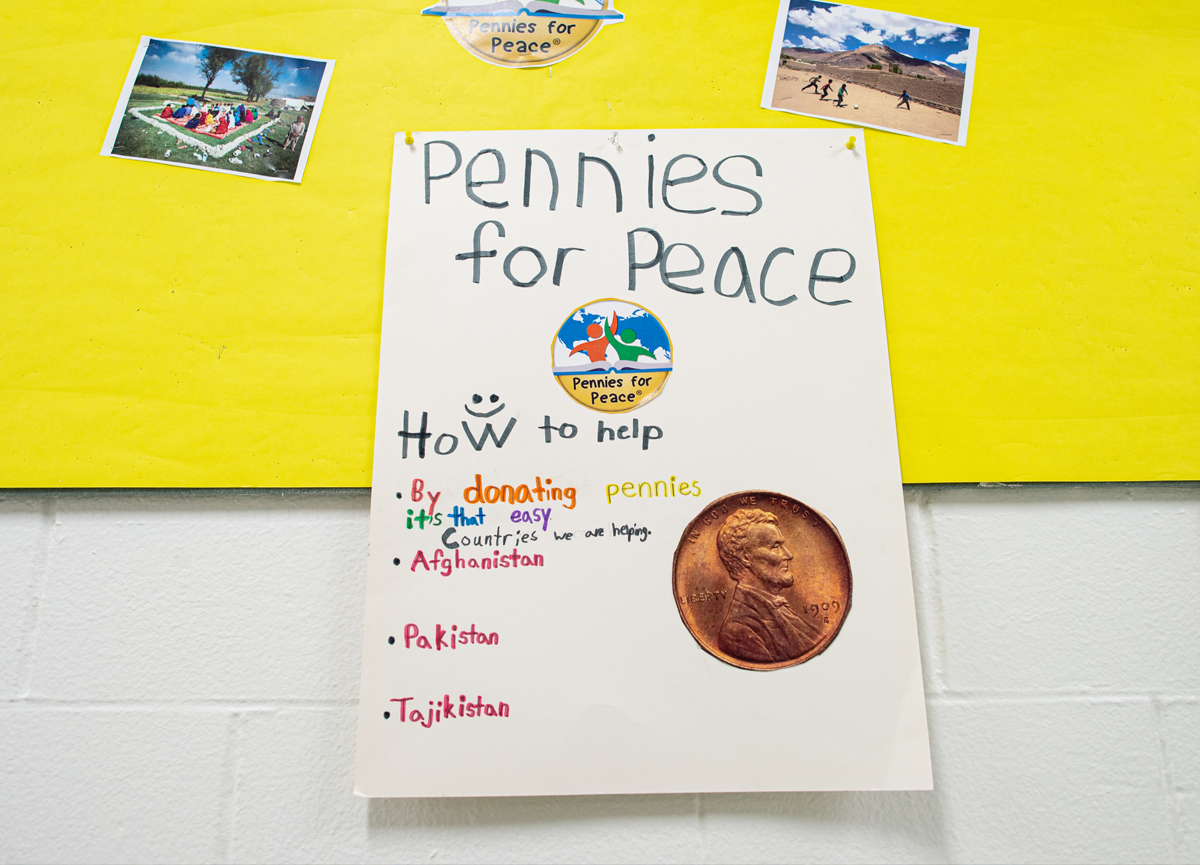 Pennies for
Peace®
Pennies
for Peace
Pennies for
Peace®
HoW to help
• By donating pennies
it's that easy
Countries we are helping.
• Afghanistan
• Pakistan
• Tajikistan
IN GOD WE TRUST
LIBERTY
1909
S